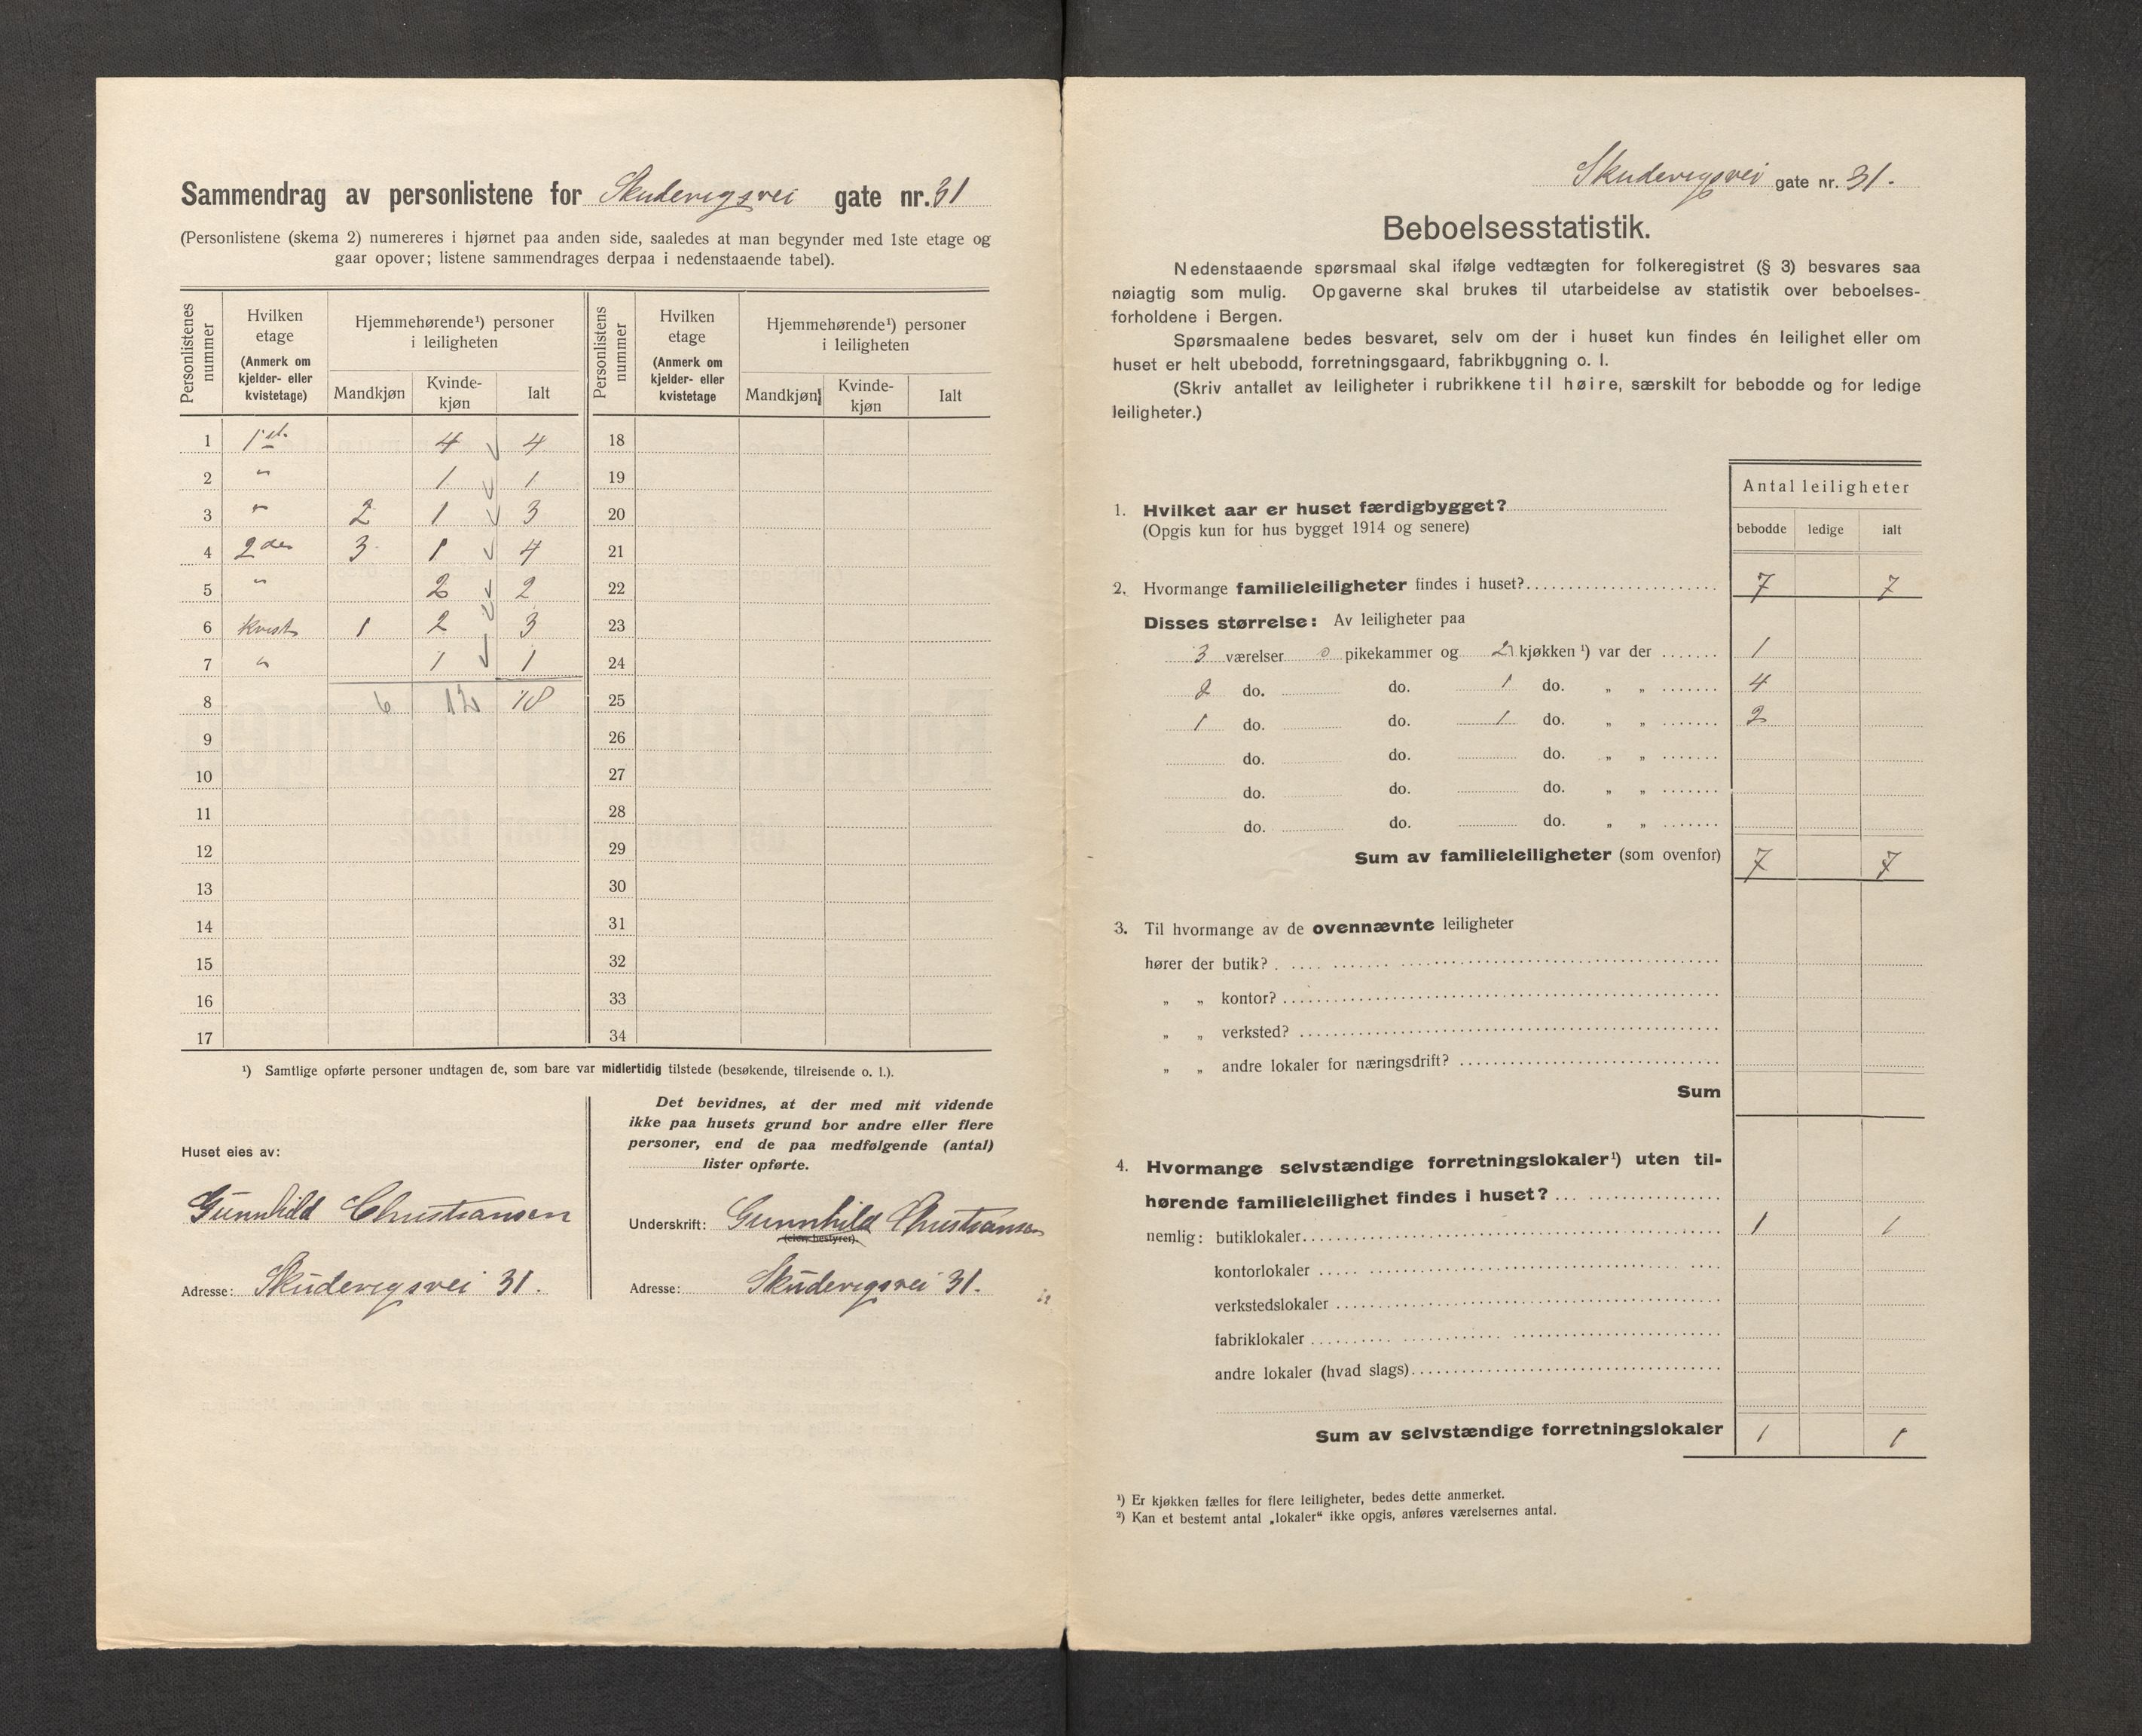 Sammendrag av personlistene for Skuderigsvei gate nr. 31
(Personlistene (skema 2) numereres i hjørnet paa anden side, saaledes at man begynder med 1ste etage og
gaar opover; listene sammendrages derpaa i nedenstaaende tabel).
Personlistenes nummer
Hvilken etage (Anmerk om kjelder- eller kvistetage)
Hjemmehørende¹) personer i leiligheten
Mandkjøn
Kvinde-kjøn
Ialt
Personlistens nummer
Hvilken etage (Anmerk om kjelder- eller kvistetage
Hjemmehørende¹) personer i leiligheten
Mandkjøn
Kvinde-kjøn
Ialt
1 1st. 4 4 18
2 " 1 1 19
3 " 2 1 3 20
4 2den 3 1 4 21
5 " 2 2 22
6 kvist 1 2 3 23
7 " 1 1 24
8 6 12 18 25
9 26
10 27
11 28
12 29
13 30
14 31
15 32
16 33
17 34
¹) Samtlige opførte personer undtagen de, som bare var midlertidig tilstede (besøkende, tilreisende o. l.).
Huset eies av:
Gunnhild Christiansen
Adresse: Skuderigsvei 31.
Det bevidnes, at der med mit vidende
ikke paa husets grund bor andre eller flere
personer, end de paa medfølgende (antal)
lister opførte.
Underskrift: Gunnhild Christiansen
(eier, bestyrer).
Adresse: Skuderigsvei 31.
Skuderigsvei gate nr. 31.
Beboelsesstatistik.
Nedenstaaende spørsmaal skal ifølge vedtægten for folkeregistret (§ 3) besvares saa
nøiagtig som mulig. Opgaverne skal brukes til utarbeidelse av statistik over beboelses-
forholdene i Bergen.
Spørsmaalene bedes besvaret, selv om der i huset kun findes én leilighet eller om
huset er helt ubebodd, forretningsgaard, fabrikbygning o. l.
(Skriv antallet av leiligheter i rubrikkene til høire, særskilt for bebodde og for ledige
leiligheter.)
Antal leiligheter
bebodde ledige ialt
1. Hvilket aar er huset færdigbygget?
(Opgis kun for hus bygget 1914 og senere)
2. Hvormange familieleiligheter findes i huset? 7 7
Disses størrelse: Av leiligheter paa
3 værelser 0 pikekammer og 2 kjøkken ¹) var der 1
2 do. do. 1 do. „ „ 4
1 do. do. 1 do. „ „ 2
do. do. do. „ „
do. do. do. „ „
do. do. do. „ „
Sum av familieleiligheter (som ovenfor) 7 7
3. Til hvormange av de ovennævnte leiligheter
hører der butik?
„ „ kontor?
„ „ verksted?
„ „ andre lokaler for næringsdrift?
Sum
4. Hvormange selvstændige forretningslokaler¹) uten til-
hørende familieleilighet findes i huset?
nemlig: butiklokaler 1 1
kontorlokaler
verkstedslokaler
fabriklokaler
andre lokaler (hvad slags)
Sum av selvstændige forretningslokaler 1 1
¹) Er kjøkken fælles for flere leiligheter, bedes dette anmerket.
²) Kan et bestemt antal „lokaler“ ikke opgis, anføres værelsernes antal.